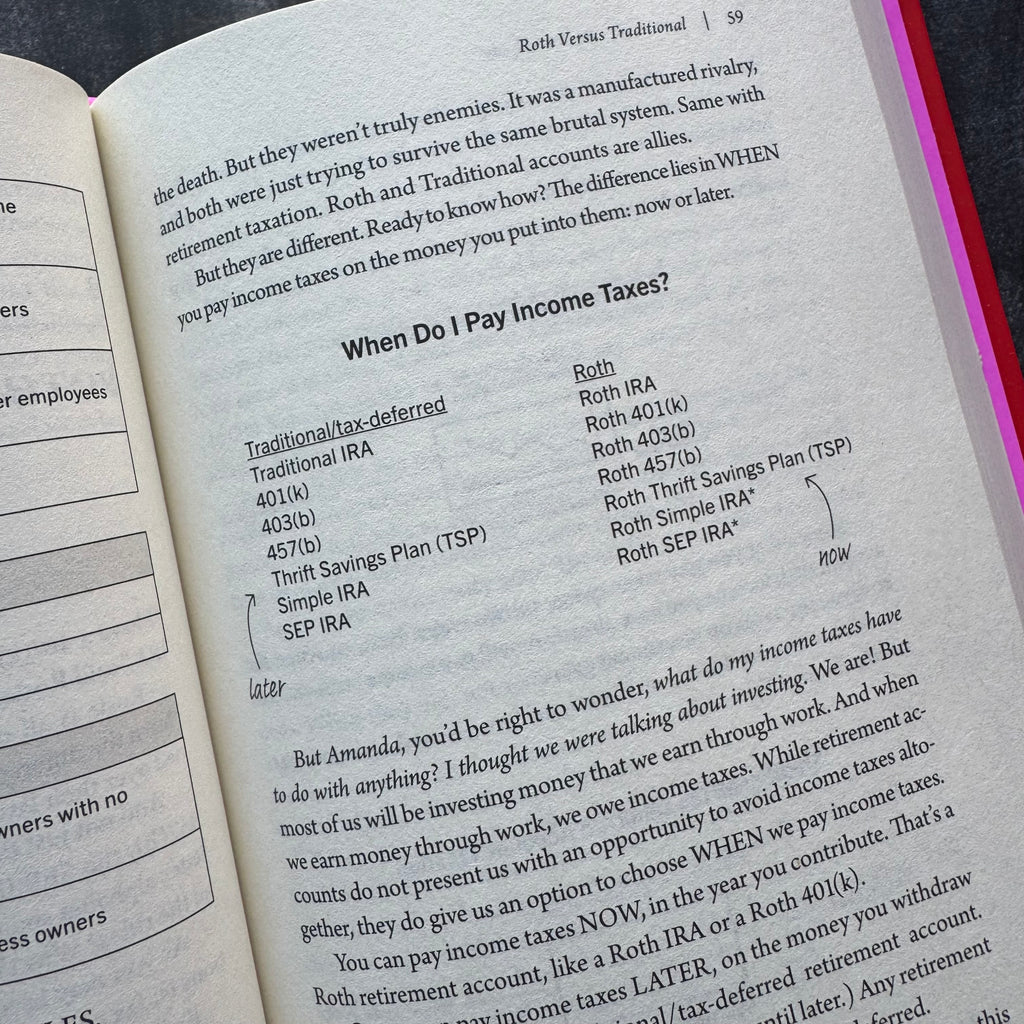 ne
ers
er employees
wners with no
ess owners
LES.
Roth Versus Traditional | 59
the death. But they weren't truly enemies. It was a manufactured rivalry,
and both were just trying to survive the same brutal system. Same with
retirement taxation. Roth and Traditional accounts are allies.
But they are different. Ready to know how? The difference lies in WHEN
you pay income taxes on the money you put into them: now or later.
When Do I Pay Income Taxes?
Traditional/tax-deferred
Traditional IRA
401(k)
403(b)
457(b)
Thrift Savings Plan (TSP)
Simple IRA
SEP IRA
later
Roth
Roth IRA
Roth 401(k)
Roth 403(b)
Roth 457(b)
Roth Thrift Savings Plan (TSP)
Roth Simple IRA*
Roth SEP IRA*
now
But Amanda, you'd be right to wonder, what do my income taxes have
to do with anything? I thought we were talking about investing. We are! But
most of us will be investing money that we earn through work. And when
we earn money through work, we owe income taxes. While retirement ac-
counts do not present us with an opportunity to avoid income taxes alto-
gether, they do give us an option to choose WHEN we pay income taxes.
You can pay income taxes NOW, in the year you contribute. That's a
Roth retirement account, like a Roth IRA or a Roth 401(k).
pay income taxes LATER, on the money you withdraw
nal/tax-deferred retirement account.
until later.) Any retirement
deferred.
this